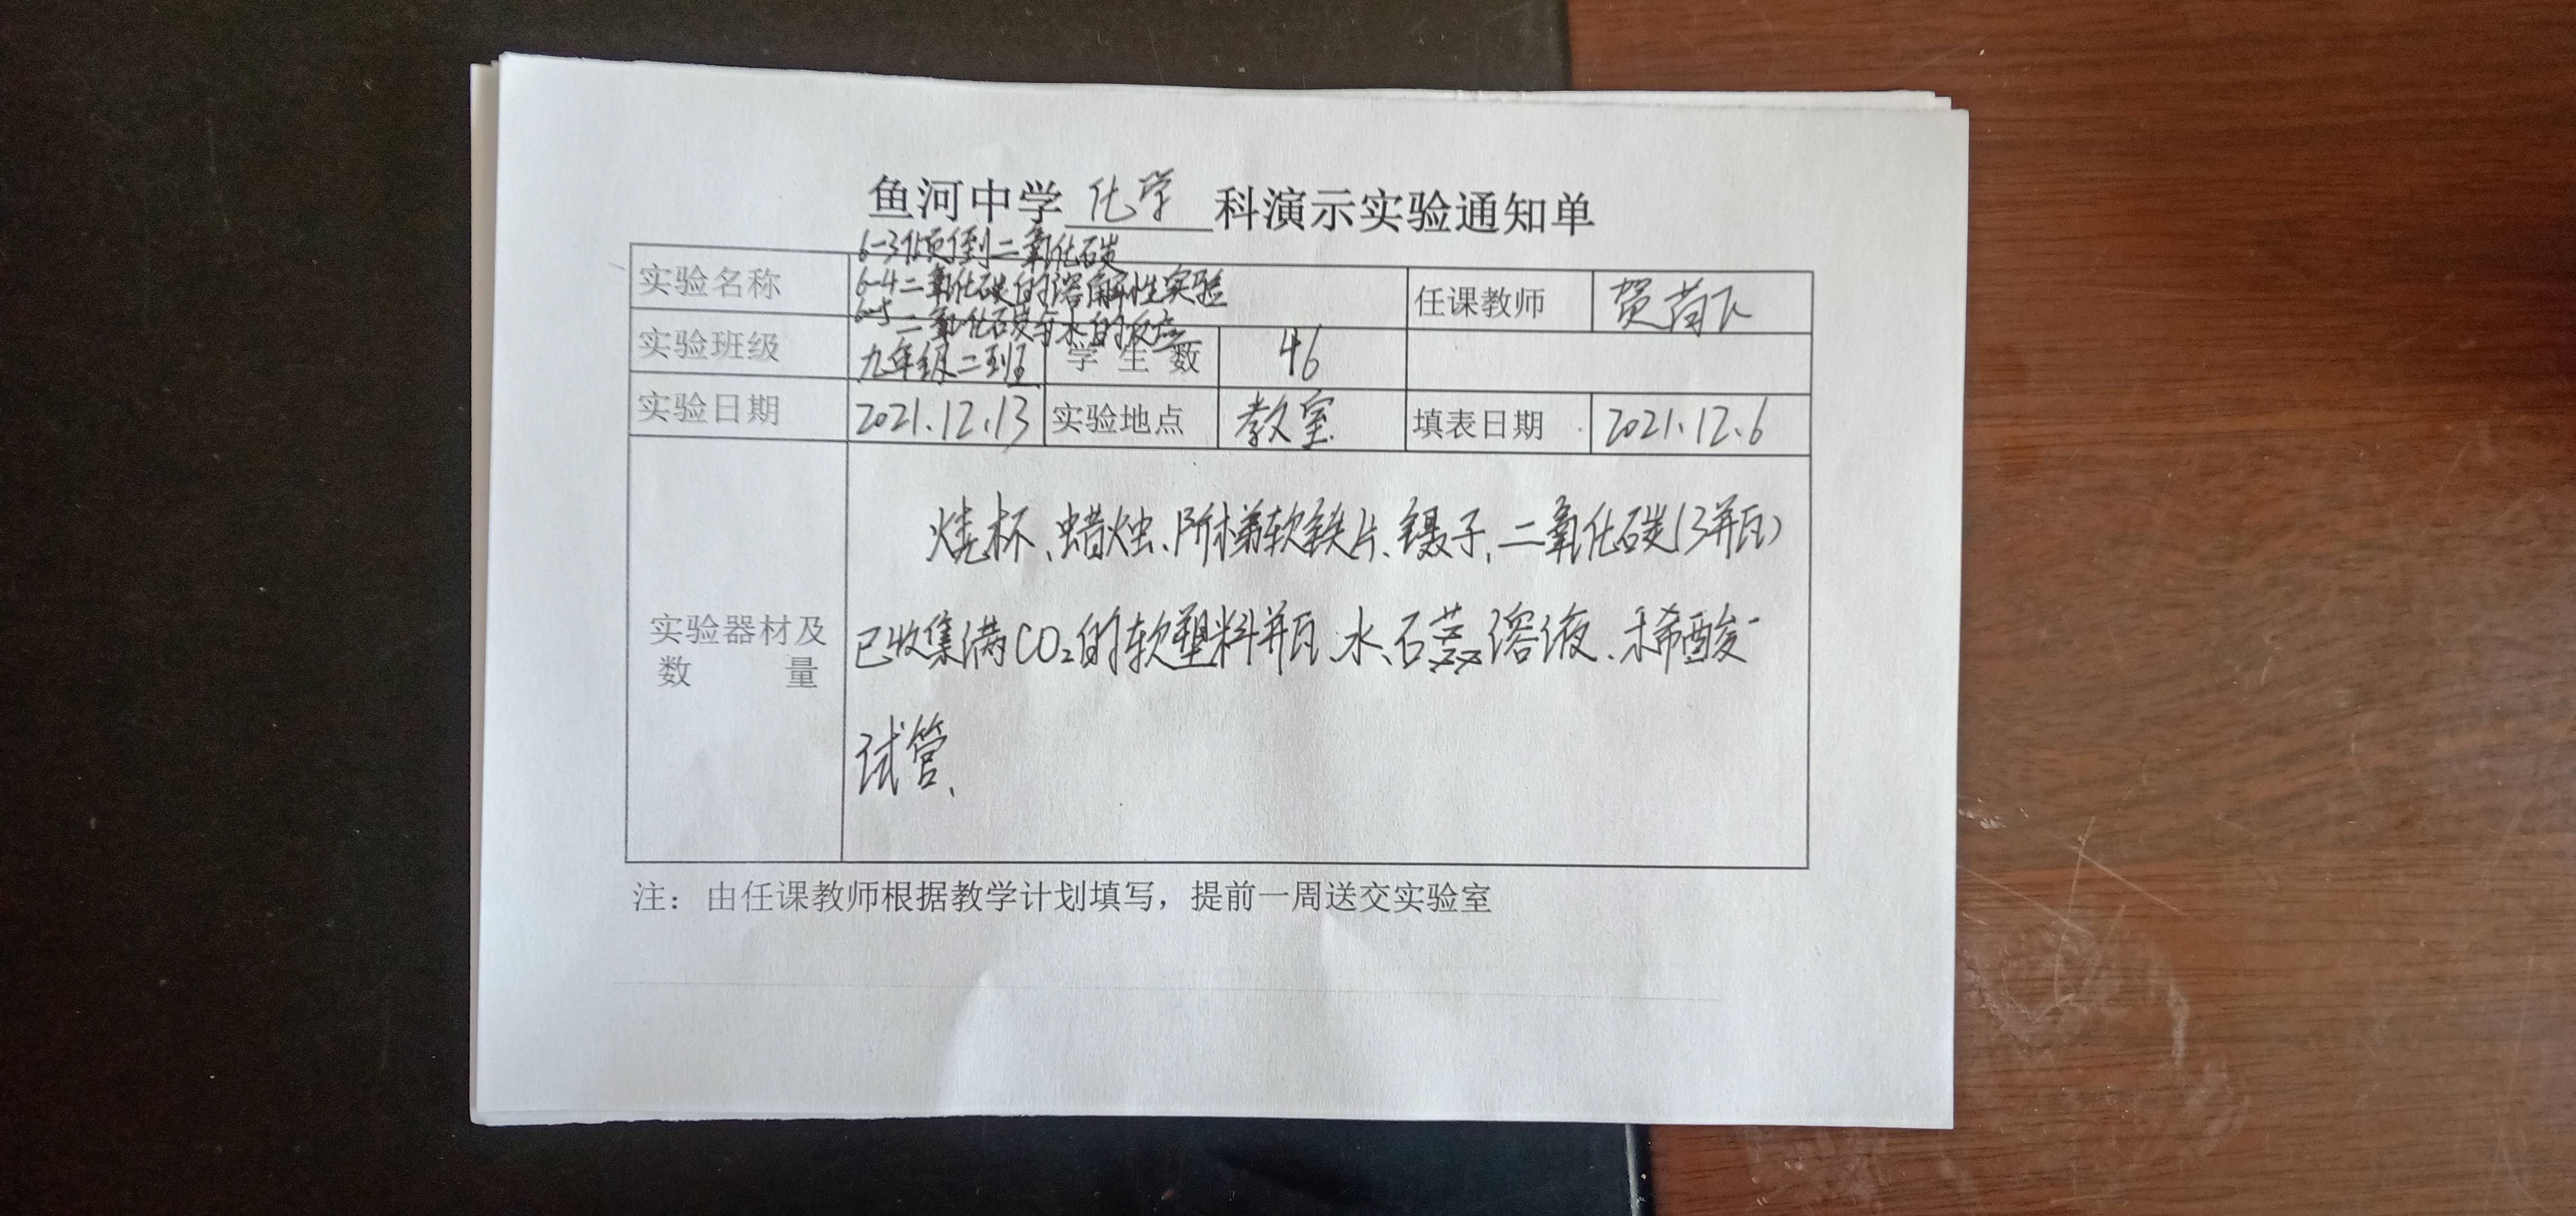 鱼河中学 化学 科演示实验通知单
6-3倾倒二氧化碳
实验名称 6-4二氧化碳的溶解性实验 任课教师 贺
6-5二氧化碳与水的反应
实验班级 九年级二班 学生数 46
实验日期 2021.12.13 实验地点 教室 填表日期 2021.12.6
烧杯、蜡烛、阶梯软铁片、镊子、二氧化碳(3瓶)
实验器材及
数量 已收集满CO₂的软塑料瓶、水、石蕊溶液、稀酸
试管、
注：由任课教师根据教学计划填写，提前一周送交实验室